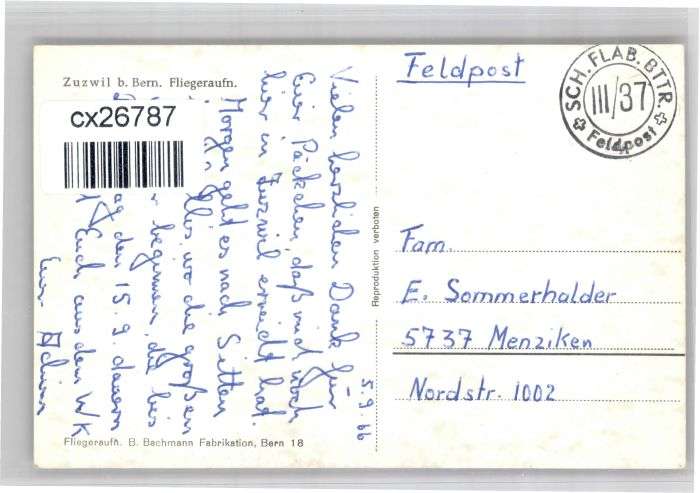 Zuzwil b. Bern. Fliegeraufn.
cx26787
5. 9. 66
Vielen herzlichen Dank für
Euer Päckchen, daß mich noch
hier in Zuzwil erreicht hat.
Morgen geht es nach Sitten
wo die großen
beginnen, die bis
ag den 15. 9. dauern
Euch aus dem WK
Euer
Fliegeraufn. B. Bachmann Fabrikation, Bern 18
Reproduktion verboten
Feldpost
SCH. FLAB. BTTR.
III/37
Feldpost
Fam.
E. Sommerhalder
5737 Menziken
Nordstr. 1002